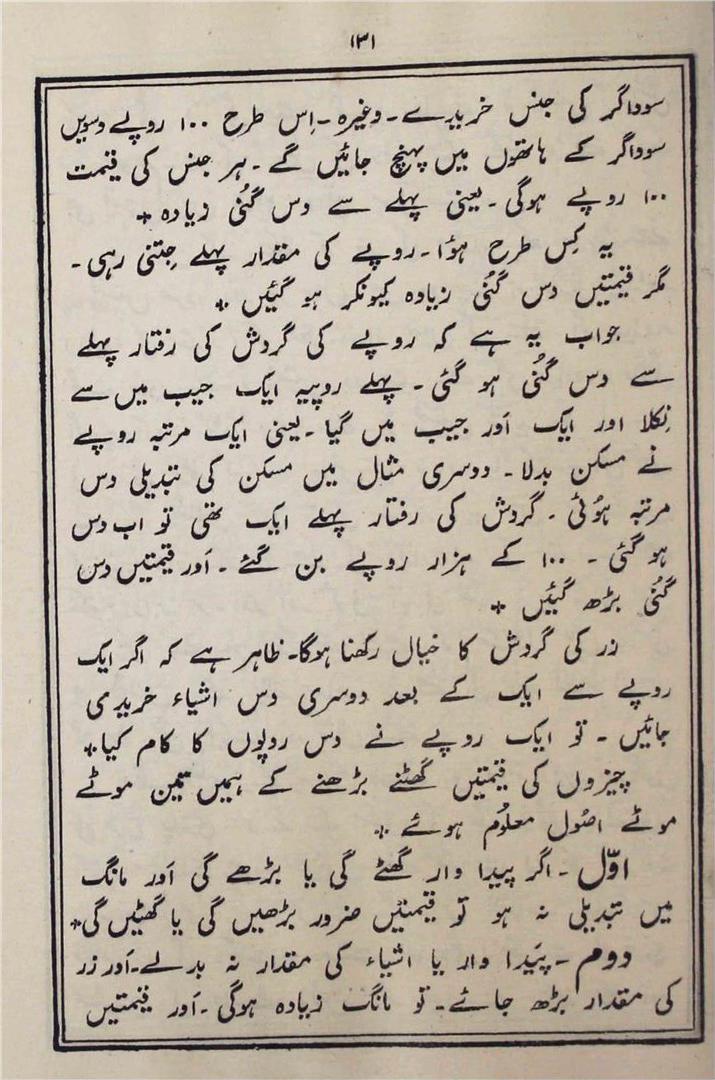 ۱۳۱
سوداگر کی جنس خریدے۔ وغیرہ۔ اِس طرح ۱۰۰ روپے دسویں
سوداگر کے ہاتھوں میں پہنچ جائیں گے۔ ہر جنس کی قیمت
۱۰۰ روپے ہوگی۔ یعنی پہلے سے دس گُنی زیادہ *
یہ کِس طرح ہؤا۔ روپے کی مقدار پہلے جِتنی رہی۔
مگر قیمتیں دس گُنی زیادہ کیونکر ہو گئیں *
جواب یہ ہے کہ روپے کی گردش کی رفتار پہلے
سے دس گُنی ہو گئی۔ پہلے روپیہ ایک جیب میں سے
نِکلا اور ایک اَور جیب میں گیا۔ یعنی ایک مرتبہ روپے
نے مسکن بدلا۔ دوسری مثال میں مسکن کی تبدیلی دس
مرتبہ ہوُئی۔ گردش کی رفتار پہلے ایک تھی تو اب دس
ہو گئی۔ ۱۰۰ کے ہزار روپے بن گئے۔ اَور قیمتیں دس
گُنی بڑھ گئیں *
زر کی گردش کا خیال رکھنا ہوگا۔ ظاہر ہے کہ اگر ایک
روپے سے ایک کے بعد دوسری دس اشیاء خریدی
جائیں۔ تو ایک روپے نے دس روپوں کا کام کیا *
چیزوں کی قیمتیں گھٹنے بڑھنے کے ہمیں تین موٹے
موٹے اصُول معلُوم ہوئے *
اوّل۔ اگر پیدا وار گھٹے گی یا بڑھے گی اَور مانگ
میں تبدیلی نہ ہو تو قیمتیں ضرور بڑھیں گی یا گھٹیں گی *
دوم۔ پَیدا وار یا اشیاء کی مقدار نہ بدلے۔ اَور زر
کی مقدار بڑھ جائے۔ تو مانگ زیادہ ہوگی۔ اَور قیمتیں